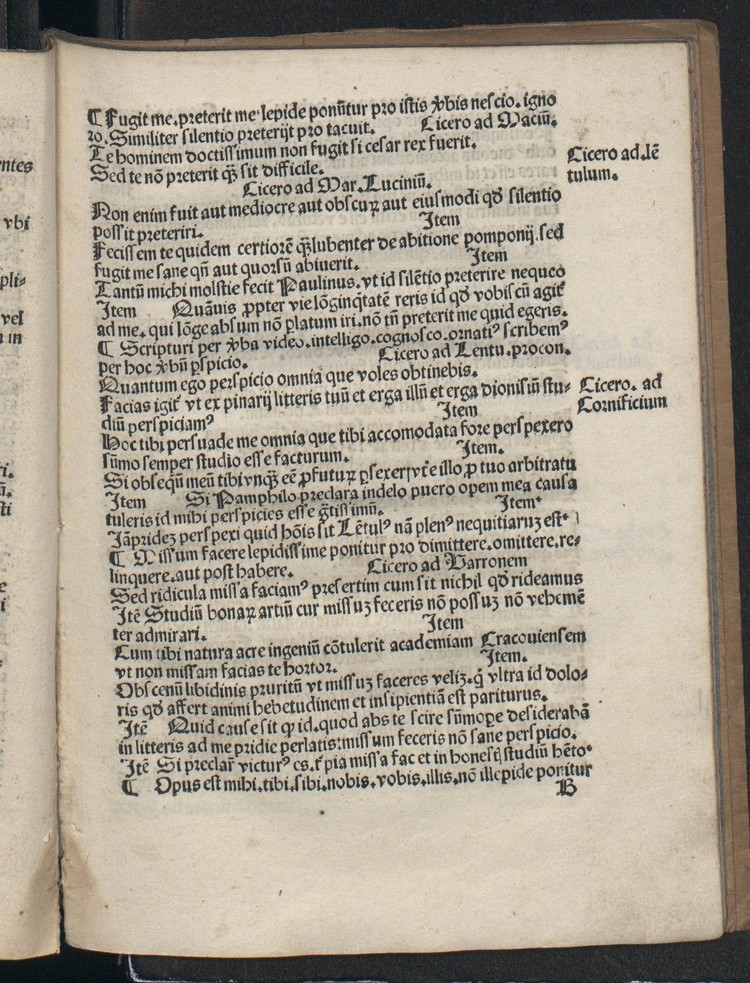 entes
vbi
pli⸗
vel
m in
ri.
sti
e
i
¶ Fugit me.preterit me lepide ponūtur pro istis v̄bis nescio.igno
ro.Similiter silentio preterijt pro tacuit. Cicero ad Maciū.
Te hominem doctissimum non fugit si cesar rex fuerit.
Sed te nō preterit qꝫ̄ sit difficile. Cicero ad.lē
Cicero ad Mar.Luciniū. tulum.
Non enim fuit aut mediocre aut obscuꝝ aut eiusmodi qđ silentio
possit preteriri. Item
Fecissem te quidem certiorē qꝫ̄ lubenter de abitione pomponij.sed
fugit me sane qn̄ aut quorsū abiuerit. Item
Tantū michi molstie fecit Paulinus.vt id silētio preterire nequeo
Item Quāuis ꝓpter vie lōginqͥtatē reris id qđ vobiscū agitᷣ
ad me.qui lōge absum nō ꝑlatum iri.nō tn̄ preterit me quid egeris.
¶ Scripturi per v̄ba video.intelligo.cognosco.ornatiꝰ scribemꝰ
per hoc v̄bū ꝑspicio. Cicero ad Lentu.procon.
Quantum ego perspicio omnia que voles obtinebis.
Facias igitᷣ vt ex pinarij litteris tuū et erga illū et erga dionisiū stu⸗ Cicero. ad
diū perspiciamꝰ Item Cornificium
Hoc tibi persuade me omnia que tibi accomodata fore perspexero
sūmo semper studio esse facturum. Item.
Si obsequū meū tibi vnqꝫ̄ eē ꝓfuturꝝ illo ꝓ tuo arbitratu
Item Si Pamphilo preclara indelo puero opem mea causa
tuleris id mihi perspicies esse gͣtissimū. Item
Jāprideꝫ perspexi quid hōis sit Lētulꝰ nā plenꝰ nequitiaruꝫ est
¶ Missum facere lepidissime ponitur pro dimittere.omittere.re⸗
linquere.aut post habere. Cicero ad Varronem
Sed ridicula missa faciamꝰ presertim cum sit nichil qđ rideamus
Itē Studiū bonaꝝ artiū cur missuꝫ feceris nō possuꝫ nō vehemē
ter admirari. Item
Cum tibi natura acre ingeniū cōtulerit academiam Cracouiensem
vt non missam facias te hortor. Item.
Obscenū libidinis pruritū vt missuꝫ faceres veliꝫ.qͣ vltra id dolo⸗
ris qđ affert animi hebetudinem et insipientiā est pariturus.
Itē Quid cause sit ꝙ id.quod abs te scire sūmoꝑe desiderabā
in litteris ad me pridie perlatis:missum feceris nō sane perspicio.
Itē Si preclarꝰ victurꝰ es. pia missa fac et in honesti studiū
¶ Opus est mihi.tibi.sibi.nobis.vobis.illis.nō illepide ponitur
B